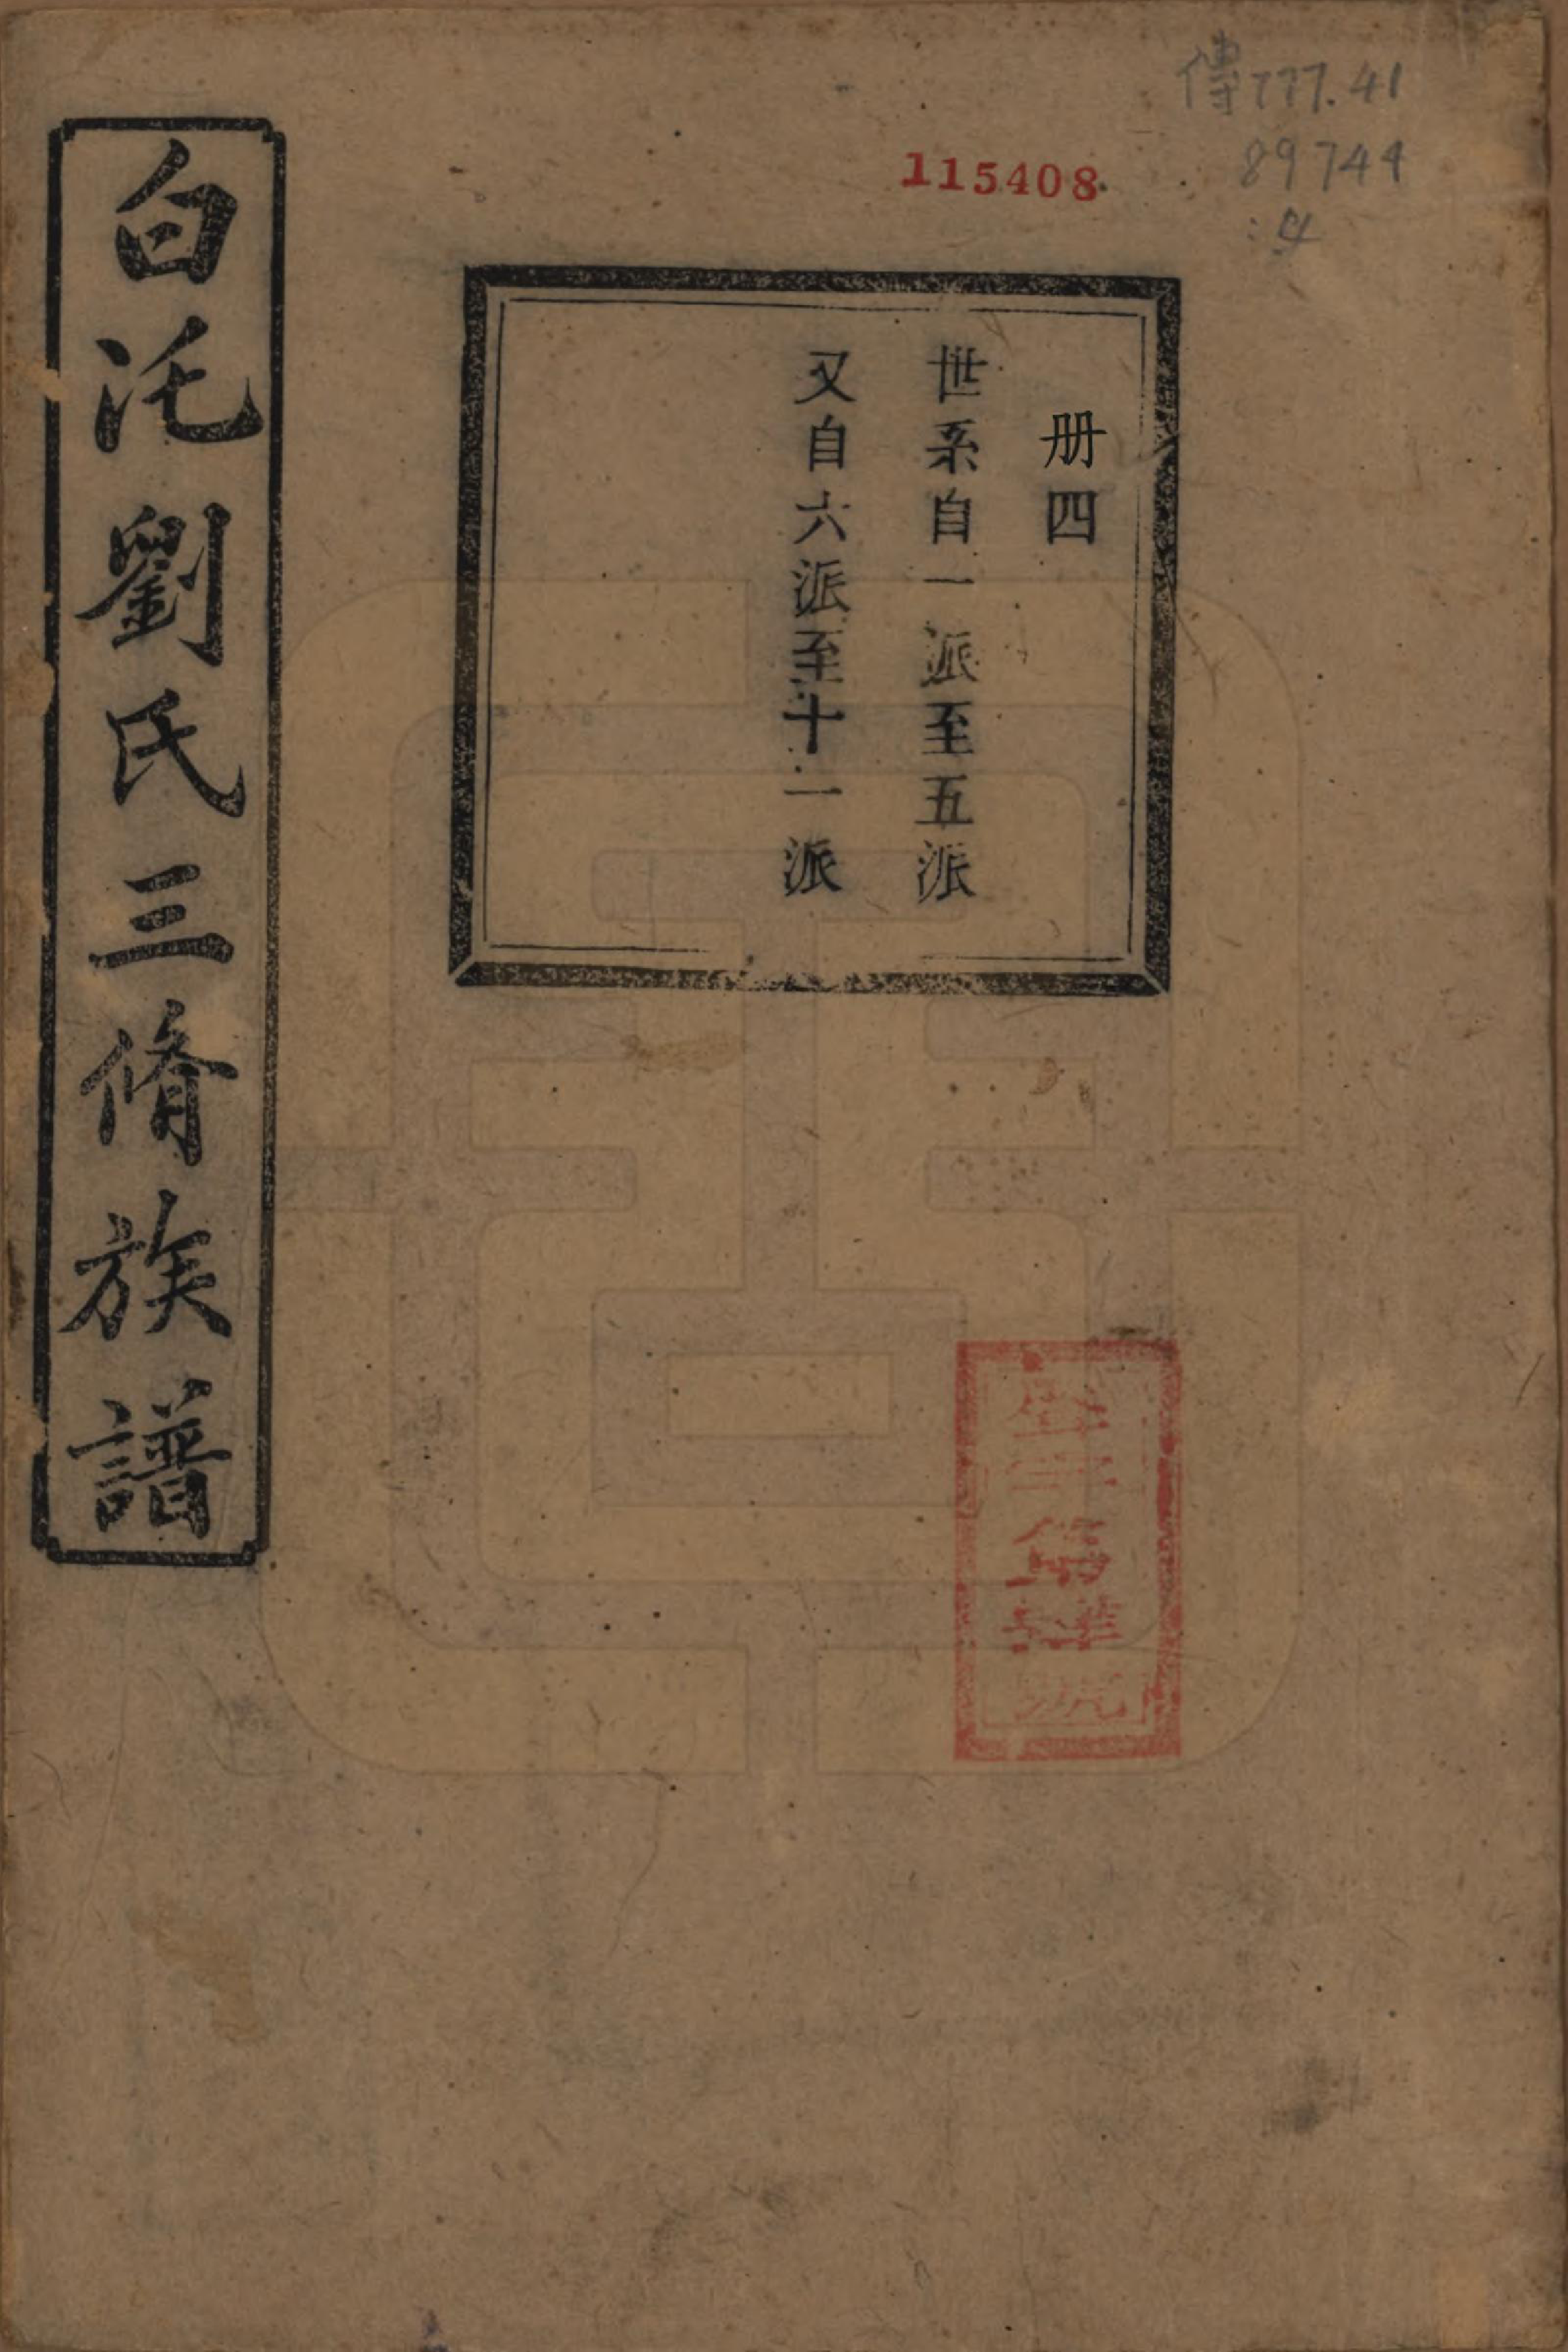 傳777.41
89744
:4
115408
册四
世系自一派至五派
又自六派至十一派
白沱劉氏三脩族譜
號